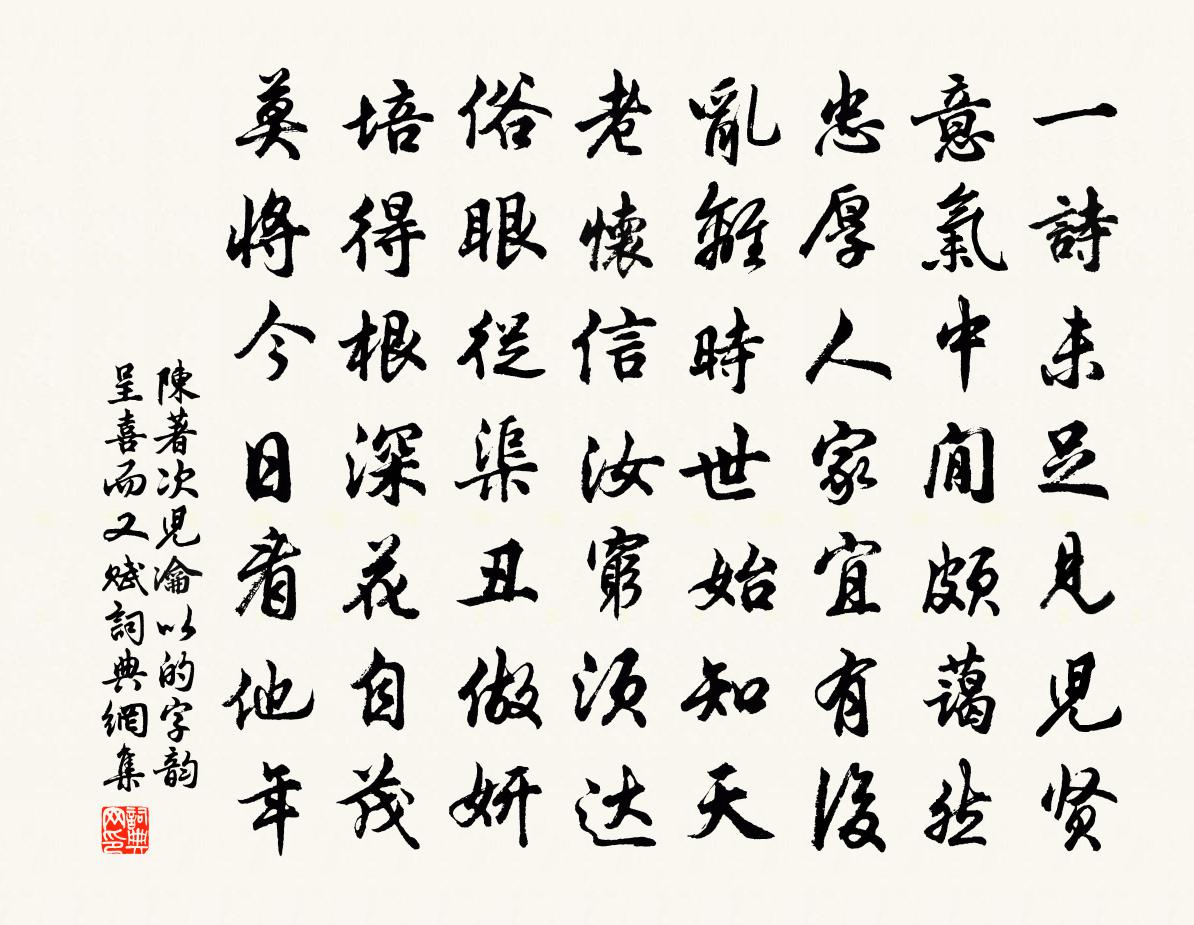 一詩未足見児贤
意氣中間頗藹然
忠厚人家宜有後
亂離時世始知天
老懷信汝窮須达
俗眼從渠丑做妍
培得根深花自茂
莫將今日看他年
陳著次児瀹以的字韵
呈喜而又赋詞典網集
詞典网印